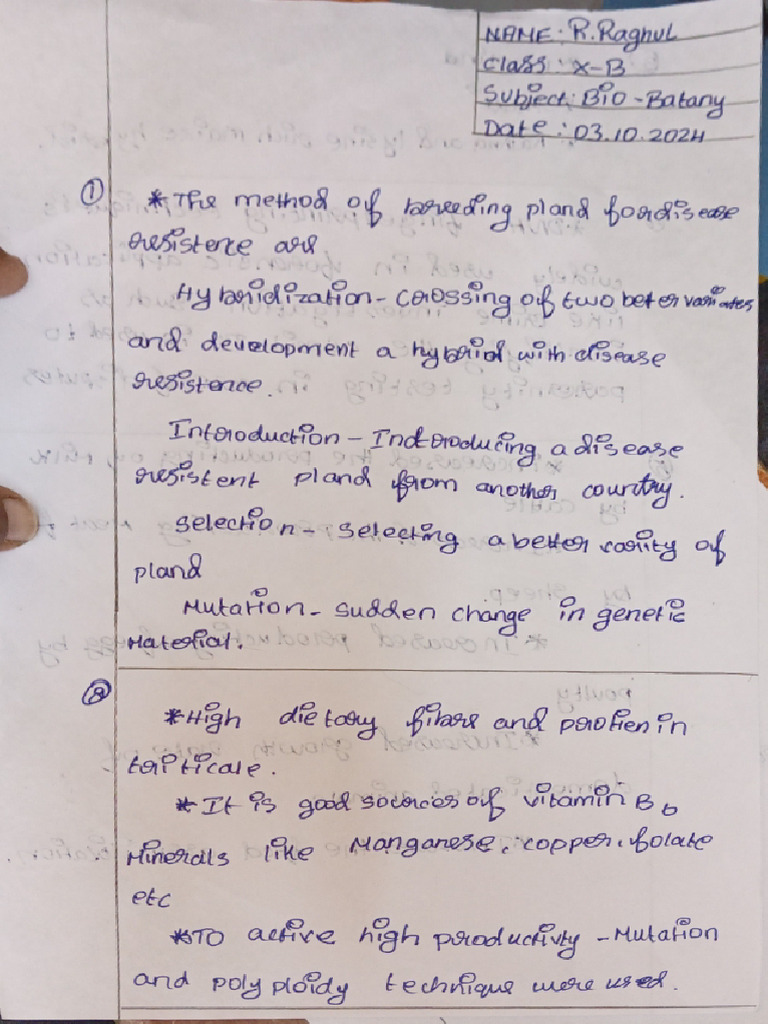 NAME: R.Raghul
Class: X-B
Subject: Bio-Batany
Date: 03.10.2024
① *The method of breeding pland fordisease
resistence are
Hybridization - crossing of two beter variates
and development a hybrid with disease
resistence.
Introduction - Indroducing a disease
resistent pland from another country.
Selection - selecting a better varity of
pland
Mutation - sudden change in genetic
Material.
② *High dietary fibre and protien in
triticale.
*It is good sources of vitamin B6
Minerals like Manganese, copper, folate
etc
*TO active high productivity - Mutation
and polyploidy technique were used.